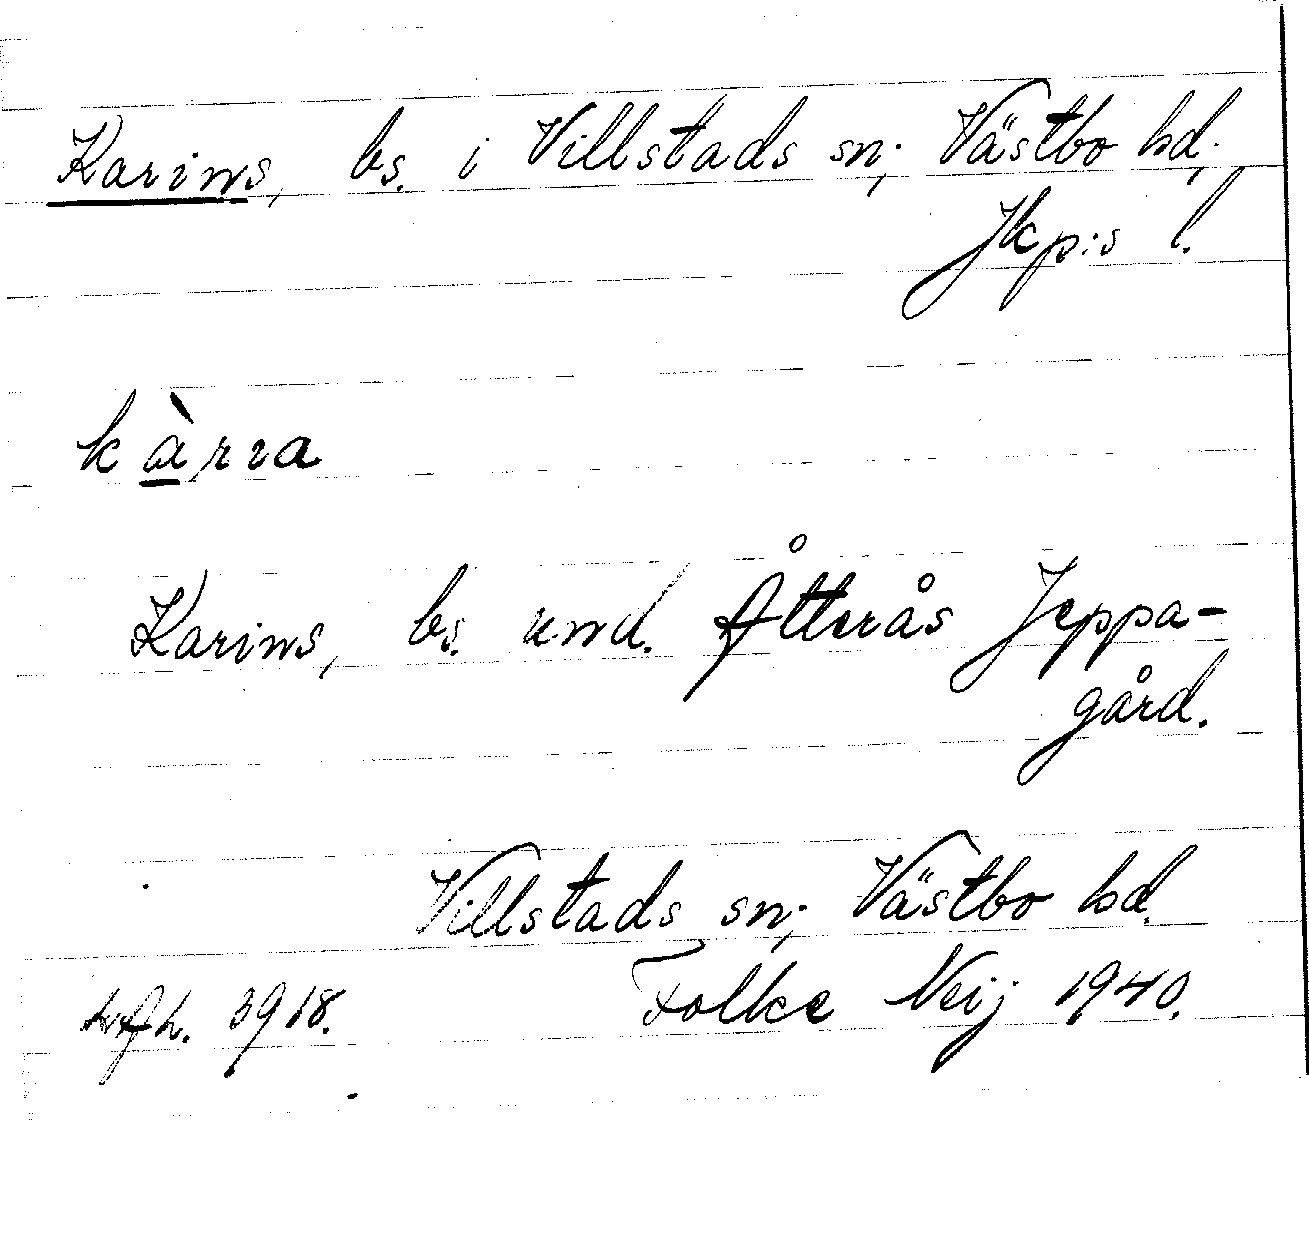 Karins, bs. i Villstads sn; Västbo hd,
Jkp:s l.
kàrra
Karins, bs. und. Åtterås Jeppa-
gård.
Villstads sn; Västbo hd.
3918. Folke Neij 1940.